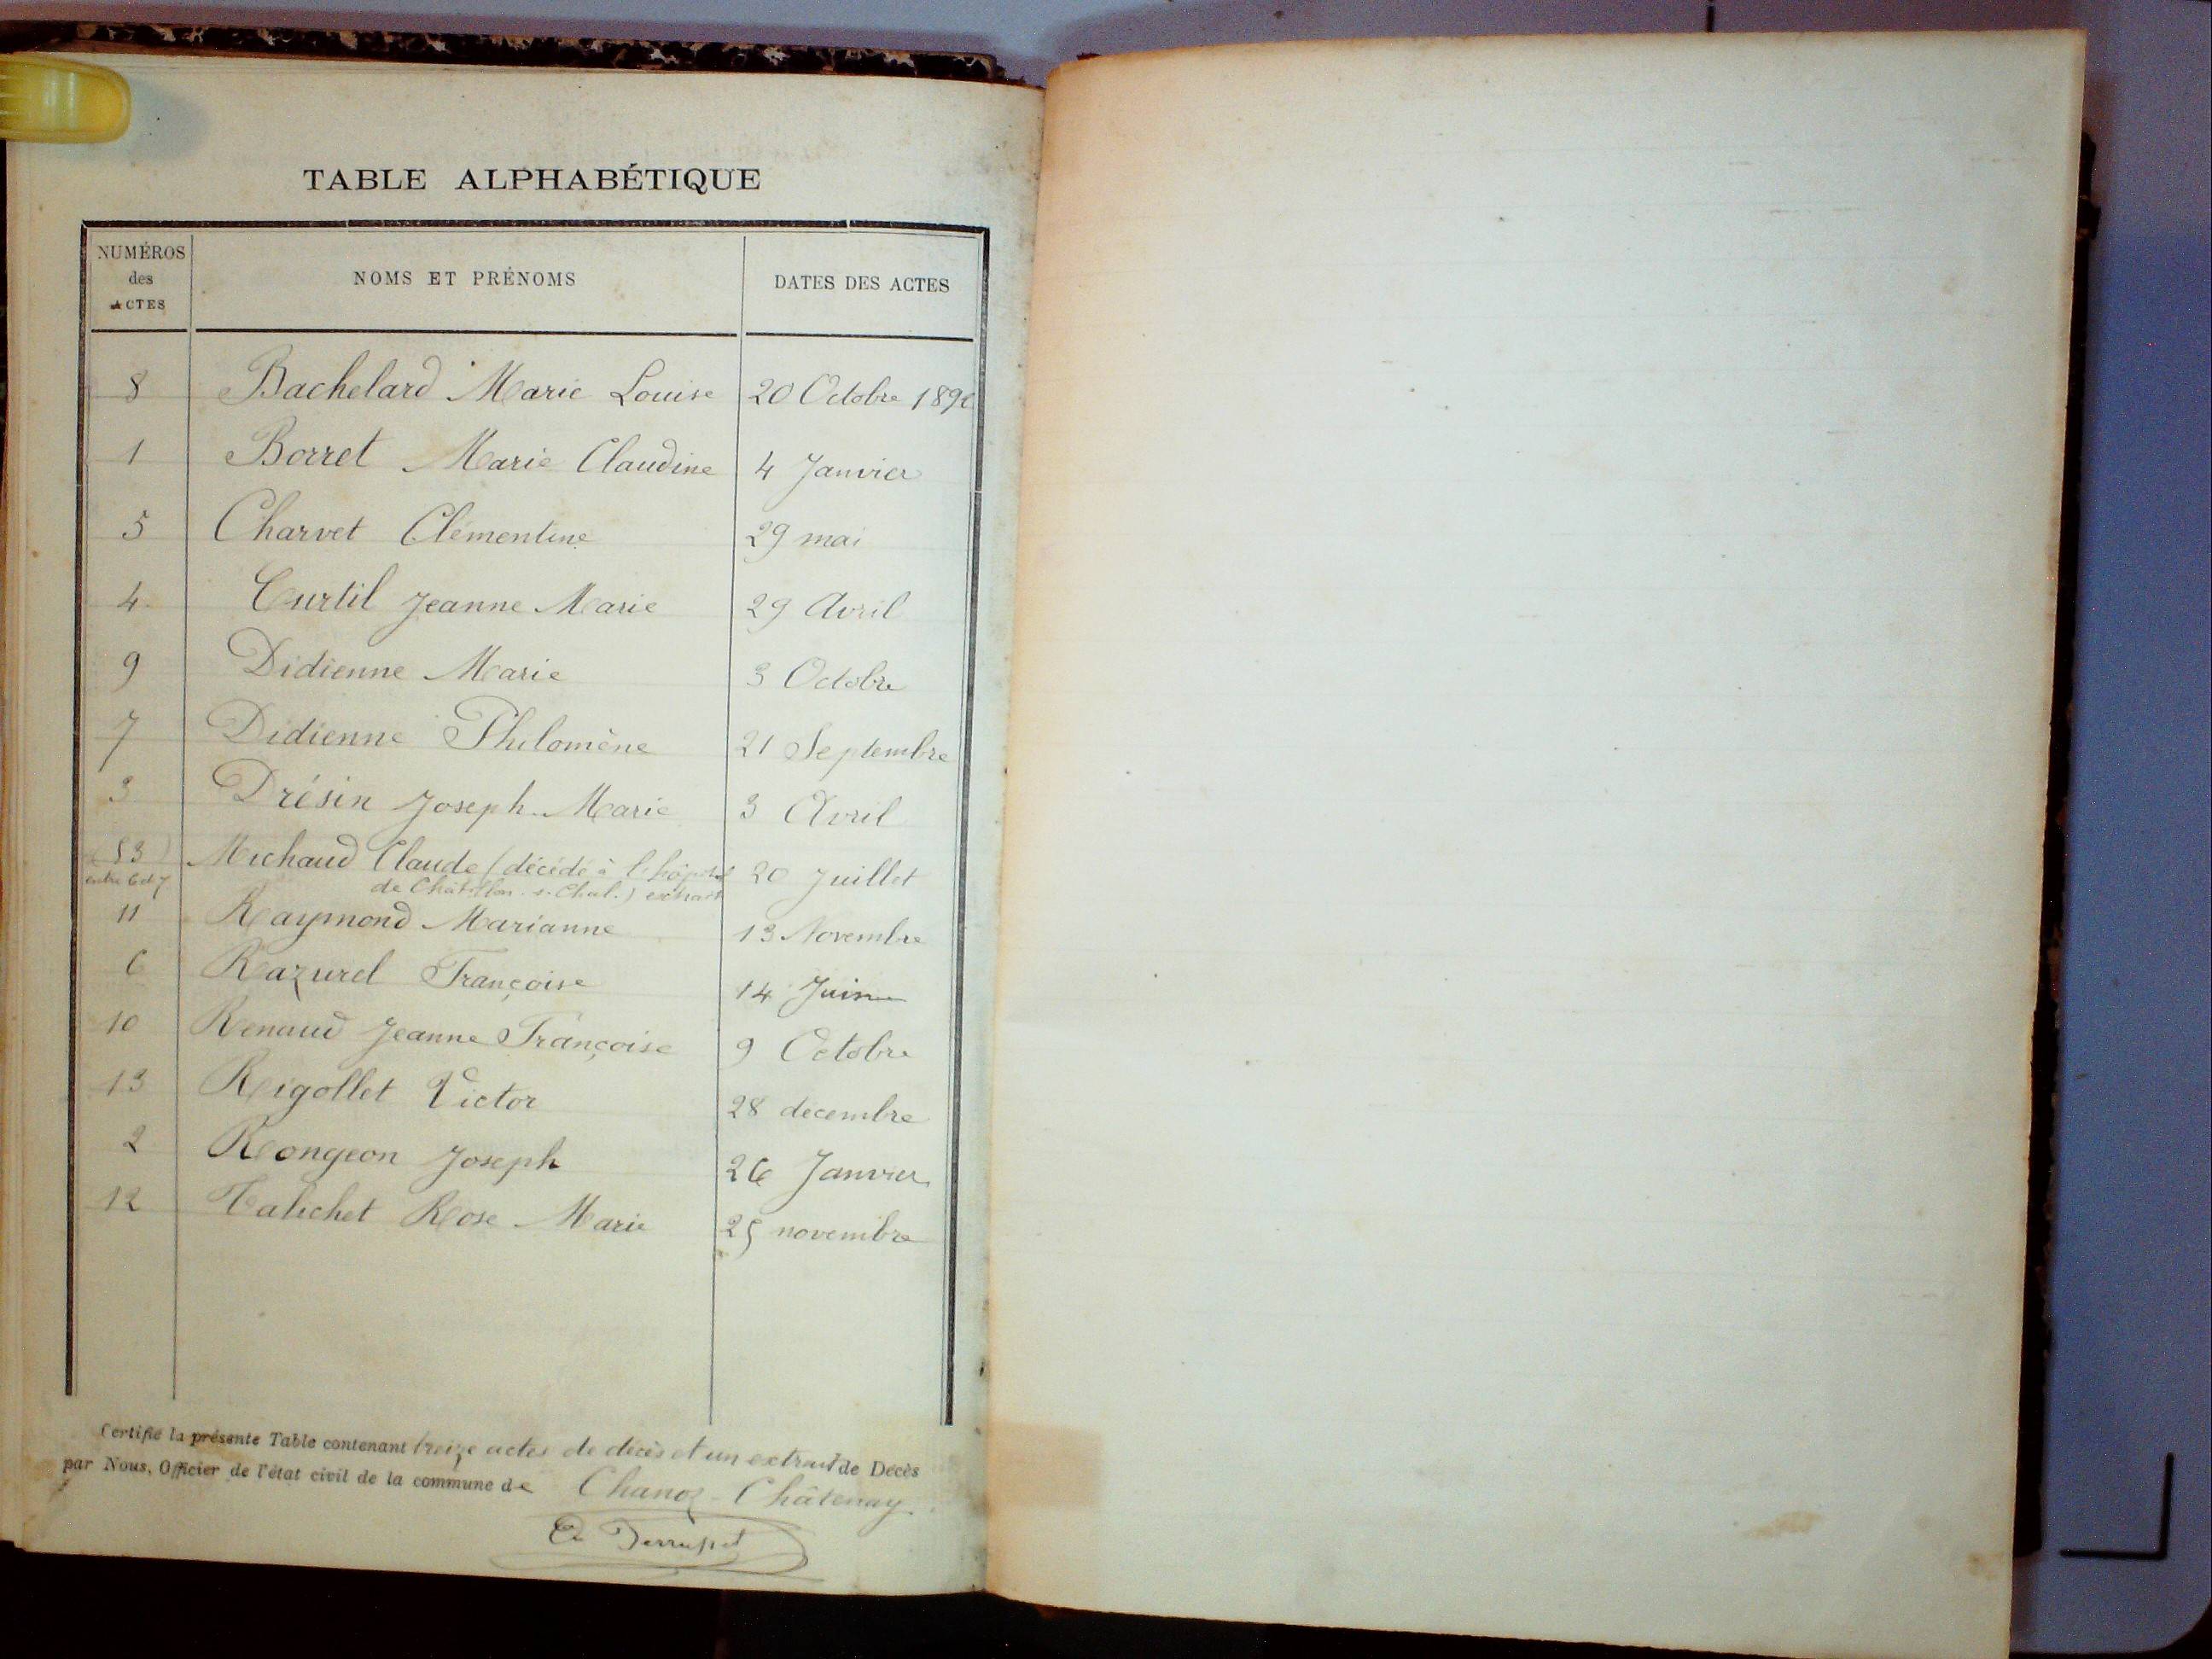 TABLE ALPHABÉTIQUE
NUMÉROS
des
ACTES
NOMS ET PRÉNOMS
DATES DES ACTES
8 Bachelard Marie Louise 20 Octobre
1 Borret Marie Claudine 4 Janvier
5 Charvet Clémentine 29 mai
4 Curtil Jeanne Marie 29 Avril
9 Didienne Marie 3 Octobre
7 Didienne Philomène 21 Septembre
3 Drésin Joseph Marie 3 Avril
(53) Michaud Claude (décédé à l'hôpital 20 Juillet
entre 6 et 7 de Châtillon s. Chal.) extrait
11 Raymond Marianne 13 Novembre
6 Razurel Françoise 14 Juin
10 Renaud Jeanne Françoise 9 Octobre
13 Rigollet Victor 28 decembre
2 Rongeon Joseph 26 Janvier
12 Talichet Rose Marie 25 novembre
Certifié la présente Table contenant treize actes de décès et un extrait de Décès
par Nous, Officier de l'état civil de la commune de Chanoz-Châtenay